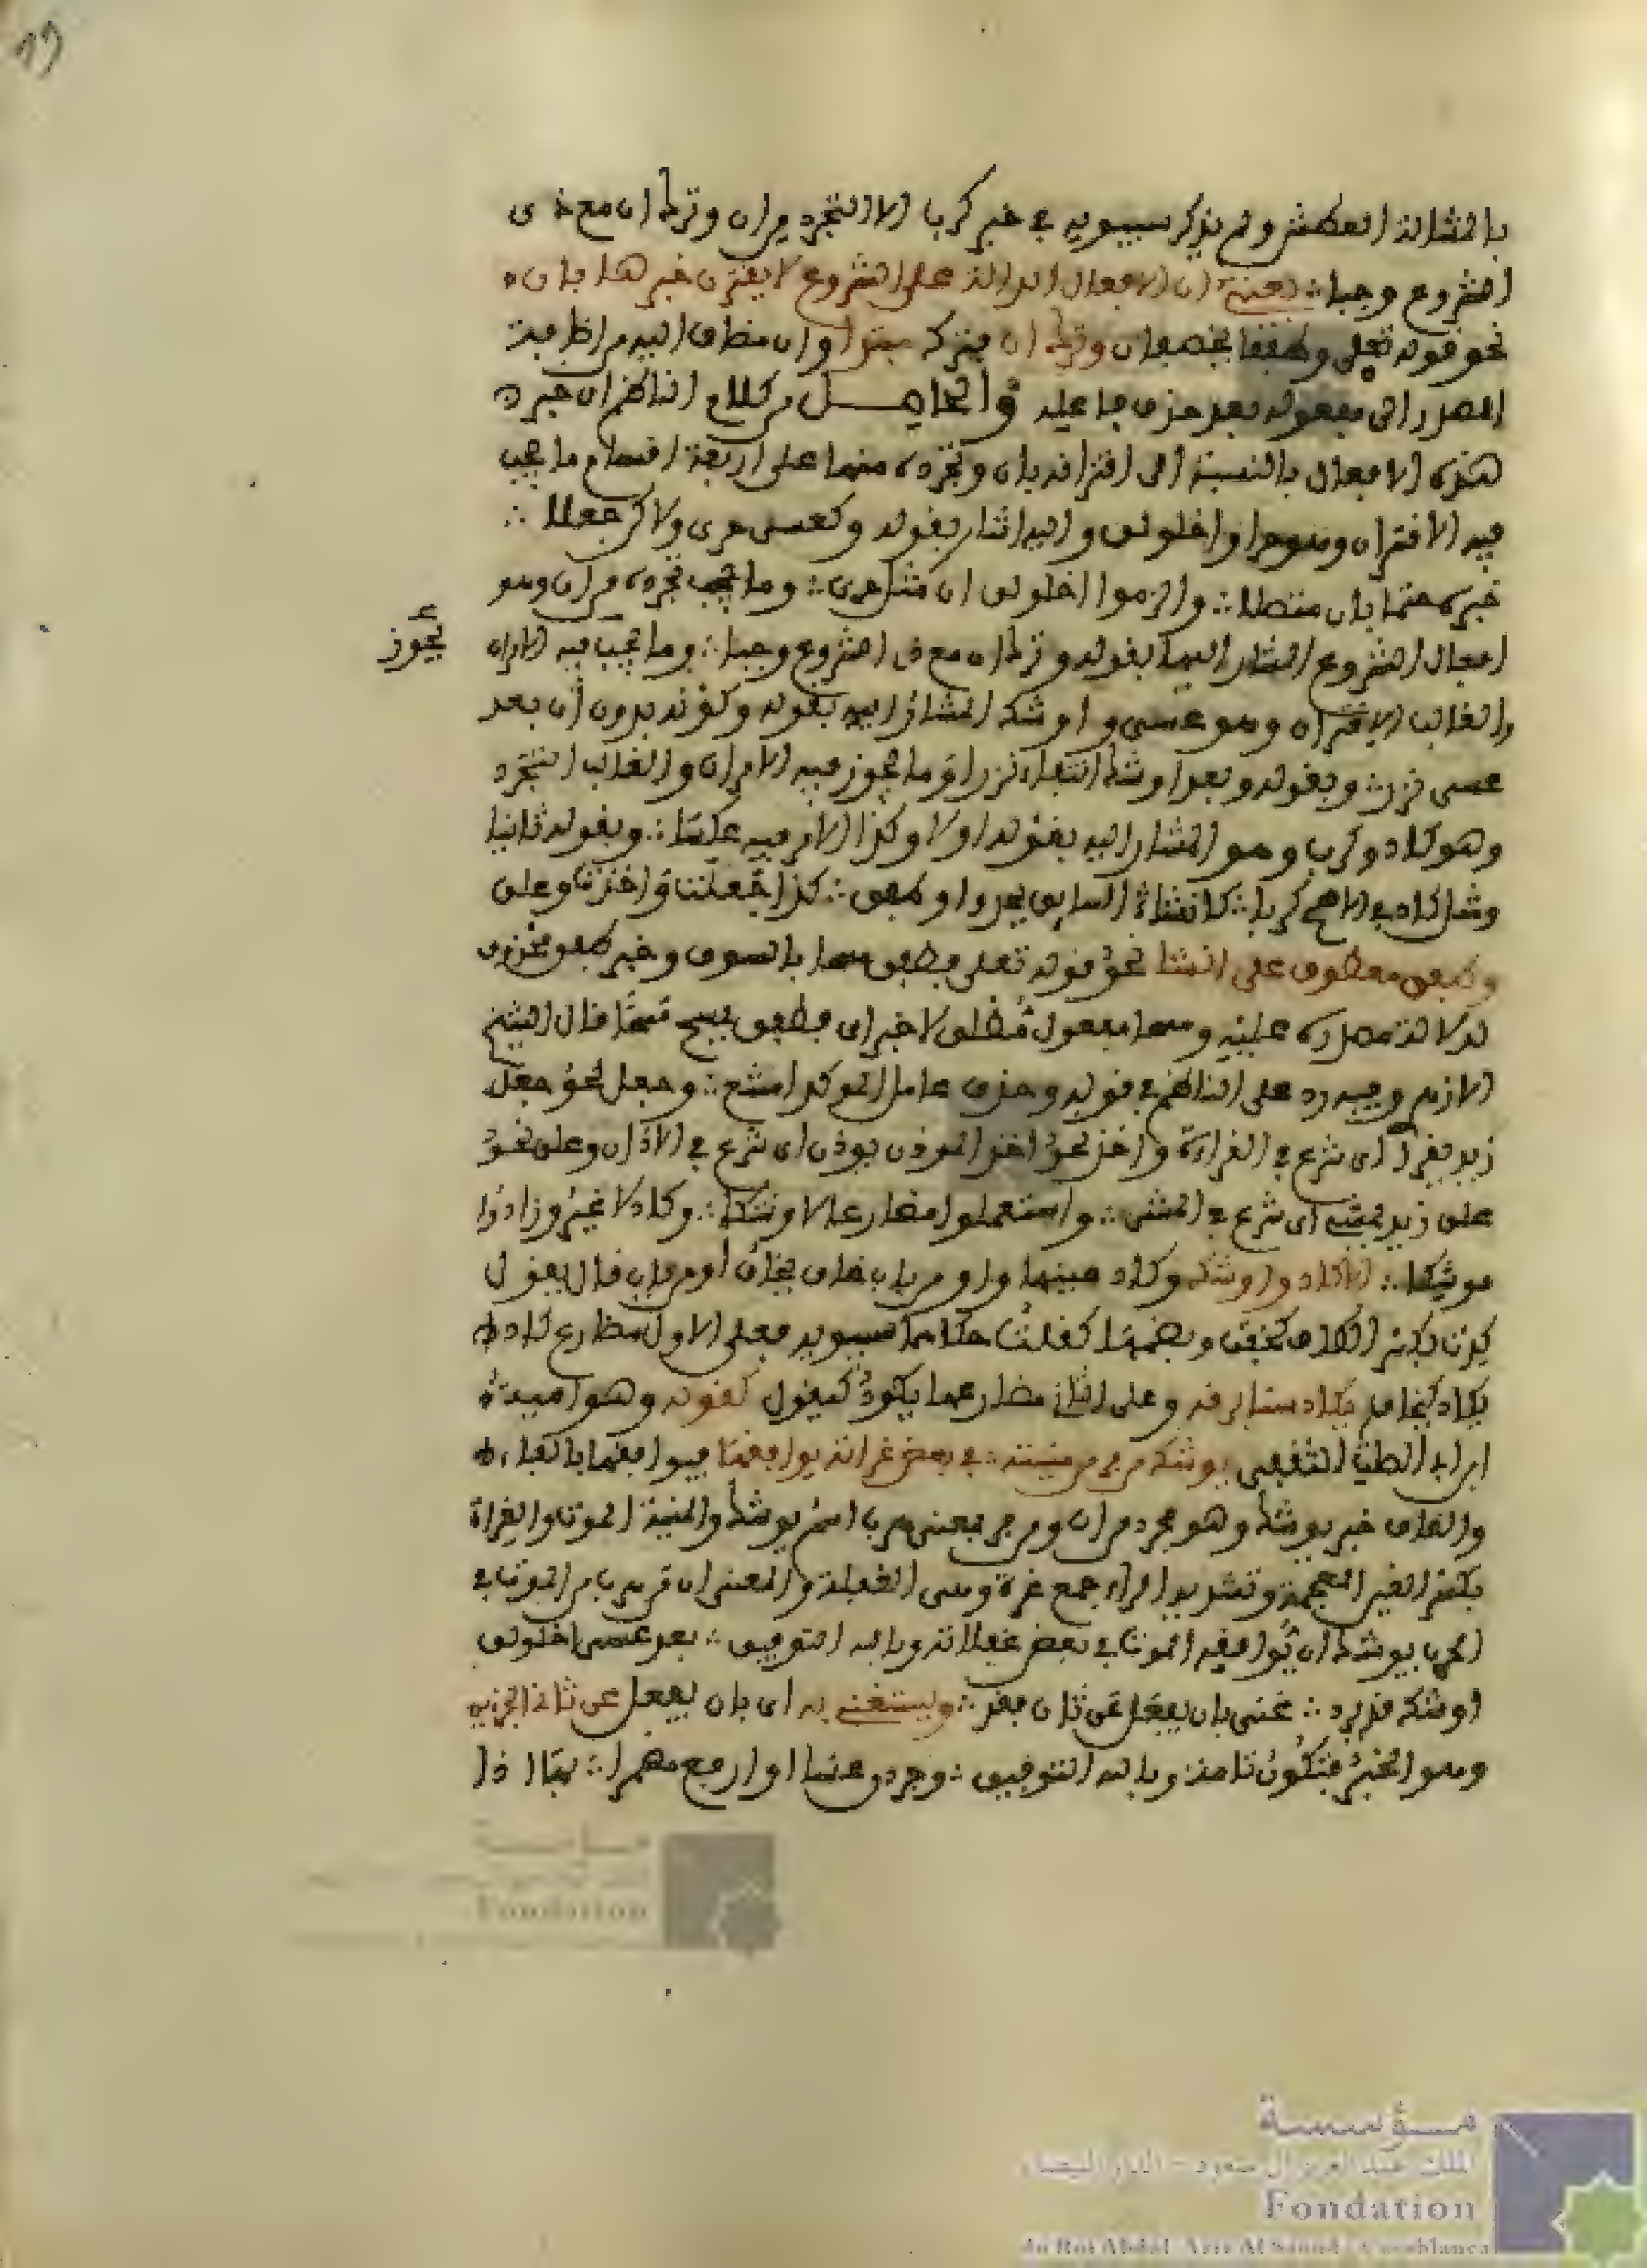 ولم يذكر سيبويه في خبر كربا الا التجرد من ان وترك ان مع ذي
الشروع وجبا ∴ يعني ان الافعال الدالة على الشروع لا يقترن خبرها بان
نحو قوله تعلى وطفقا يخصفان وترك ان مضاف اليه من اضافة
المصدر الى مفعوله بعد حذف فاعله والحاصل من كلام الناظم ان خبر
هذه الافعال بالنسبة الى اقترانه بان وتجرده منها على اربعة اقسام ما يجب
فيه الاقتران وهو حرا واخلولق واليه اشار بقوله وكعسى حرى ولاكن جعلا ∴
خبره حتما بان متصلا ∴ والزموا اخلولق ان مثل حرى ∴ وما يجب تجرده من ان وهو
افعال الشروع المشار اليها بقوله وترك ان مع ذي الشروع وجبا ∴ وما يجب فيه الامران
يجوز
والغالب الاقتران وهو عسى واوشك المشار اليه بقوله وكونه بدون ان بعد
عسى نزر ∴ وبقوله وبعد اوشك انتفا ان نزرا وما يجوز فيه الامران والغالب التجرد
وهو كاد وكرب وهو المشار اليه بقوله اولا وكاد الامر فيه عكسا ∴ وبقوله ثانيا
ومثل كاد في الاصح كربا ∴ كانشأ السايق يحدو وطفق ∴ كذا جعلت واخذت وعلق
وطفق معطوف على انشا نحو قوله تعلى فطفق مسحا بالسوق وخبر طفق محذوف
لدلالة مصدره عليه ومسحا مفعول مطلق لا خبر اي فطفق يمسح مسحا قال الشيخ
الازهري وفيه رد على الناظم في قوله وحذف عامل الموكد امتنع ∴ وجعل نحو جعل
زيد يقرأ اي شرع في القراءة واخذ نحو اخذ الموذن يوذن اي شرع في الاذان وعلق نحو
علق زيد يمشي اي شرع في المشي ∴ واستعملوا مضارعا لاوشكا ∴ وكاد لا غير وزادوا
موشكا ∴ لاكاد واوشك وكاد عينها واو من باب خاف يخاف او من باب قال يقول
كدت بكسر الكاف كخفت وبضمها كقلت حكاهما سيبويه فعلى الاول مضارع كاد
يكاد كيخاف يكاد سنا برقه وعلى الثاني مضارعها يكود كيقول كقوله وهو امية
ابن ابي الصلت الثقفي يوشك من فر من منيته ∴ في بعض غراته يوافقها فيوافقها بالفاء
والقاف خبر يوشك وهو مجرد من ان ومن فر بمعنى هرب اسم يوشك والمنية الموت والغراة
بكسر الغين المعجمة وتشديد الراء جمع غرة وهي الغفلة والمعنى ان من هرب من الموت في
الحرب يوشك ان يوافيه الموت في بعض غفلاته وبالله التوفيق ∴ بعد عسى اخلولق
اوشك قد يرد ∴ غنى بان يفعل عن ثان فقد ∴ ويستغني به اي بان يفعل عن ثاني الجزئين
وهو الخبر فتكون تامة وبالله التوفيق ∴ وجردن عسا او ارفع مضمرا ∴ بها اذا
مؤسسة
الملك عبد العزيز آل سعود - الدار البيضاء
Fondation
du Roi Abdul-Aziz Al Saoud - Casablanca